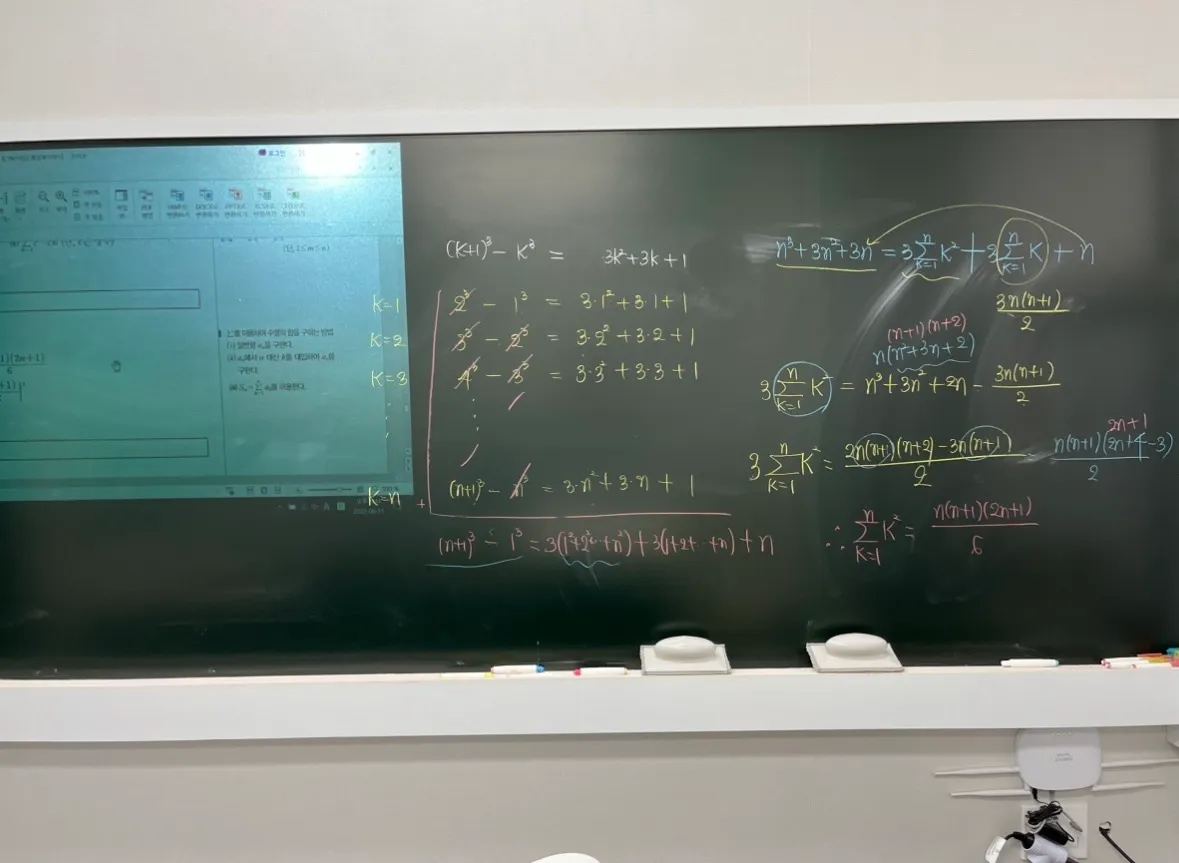 로그인
(단, 2≤m≤n)
1)(2n+1)
6
+1)
∑를 이용하여 수열의 합을 구하는 방법
(i) 일반항 aₙ을 구한다.
(ii) aₙ에서 n 대신 k를 대입하여 aₖ를
구한다.
(k+1)³ - k³ = 3k²+3k+1
k=1 2³ - 1³ = 3·1²+3·1+1
k=2 3³ - 2³ = 3·2²+3·2+1
k=3 4³ - 3³ = 3·3²+3·3+1
k=n (n+1)³ - n³ = 3·n²+3·n+1
+
(n+1)³ - 1³ = 3(1²+2²+··+n²)+3(1+2+··+n)+n
n³+3n²+3n = 3∑_{k=1}^{n} k² + 3∑_{k=1}^{n} k + n
3n(n+1)/2
(n+1)(n+2)
n(n²+3n+2)
3∑_{k=1}^{n} k² = n³+3n²+2n - 3n(n+1)/2
2n+1
3∑_{k=1}^{n} k² = (2n(n+1)(n+2)-3n(n+1))/2 n(n+1)(2n+4-3)/2
∴ ∑_{k=1}^{n} k² = n(n+1)(2n+1)/6